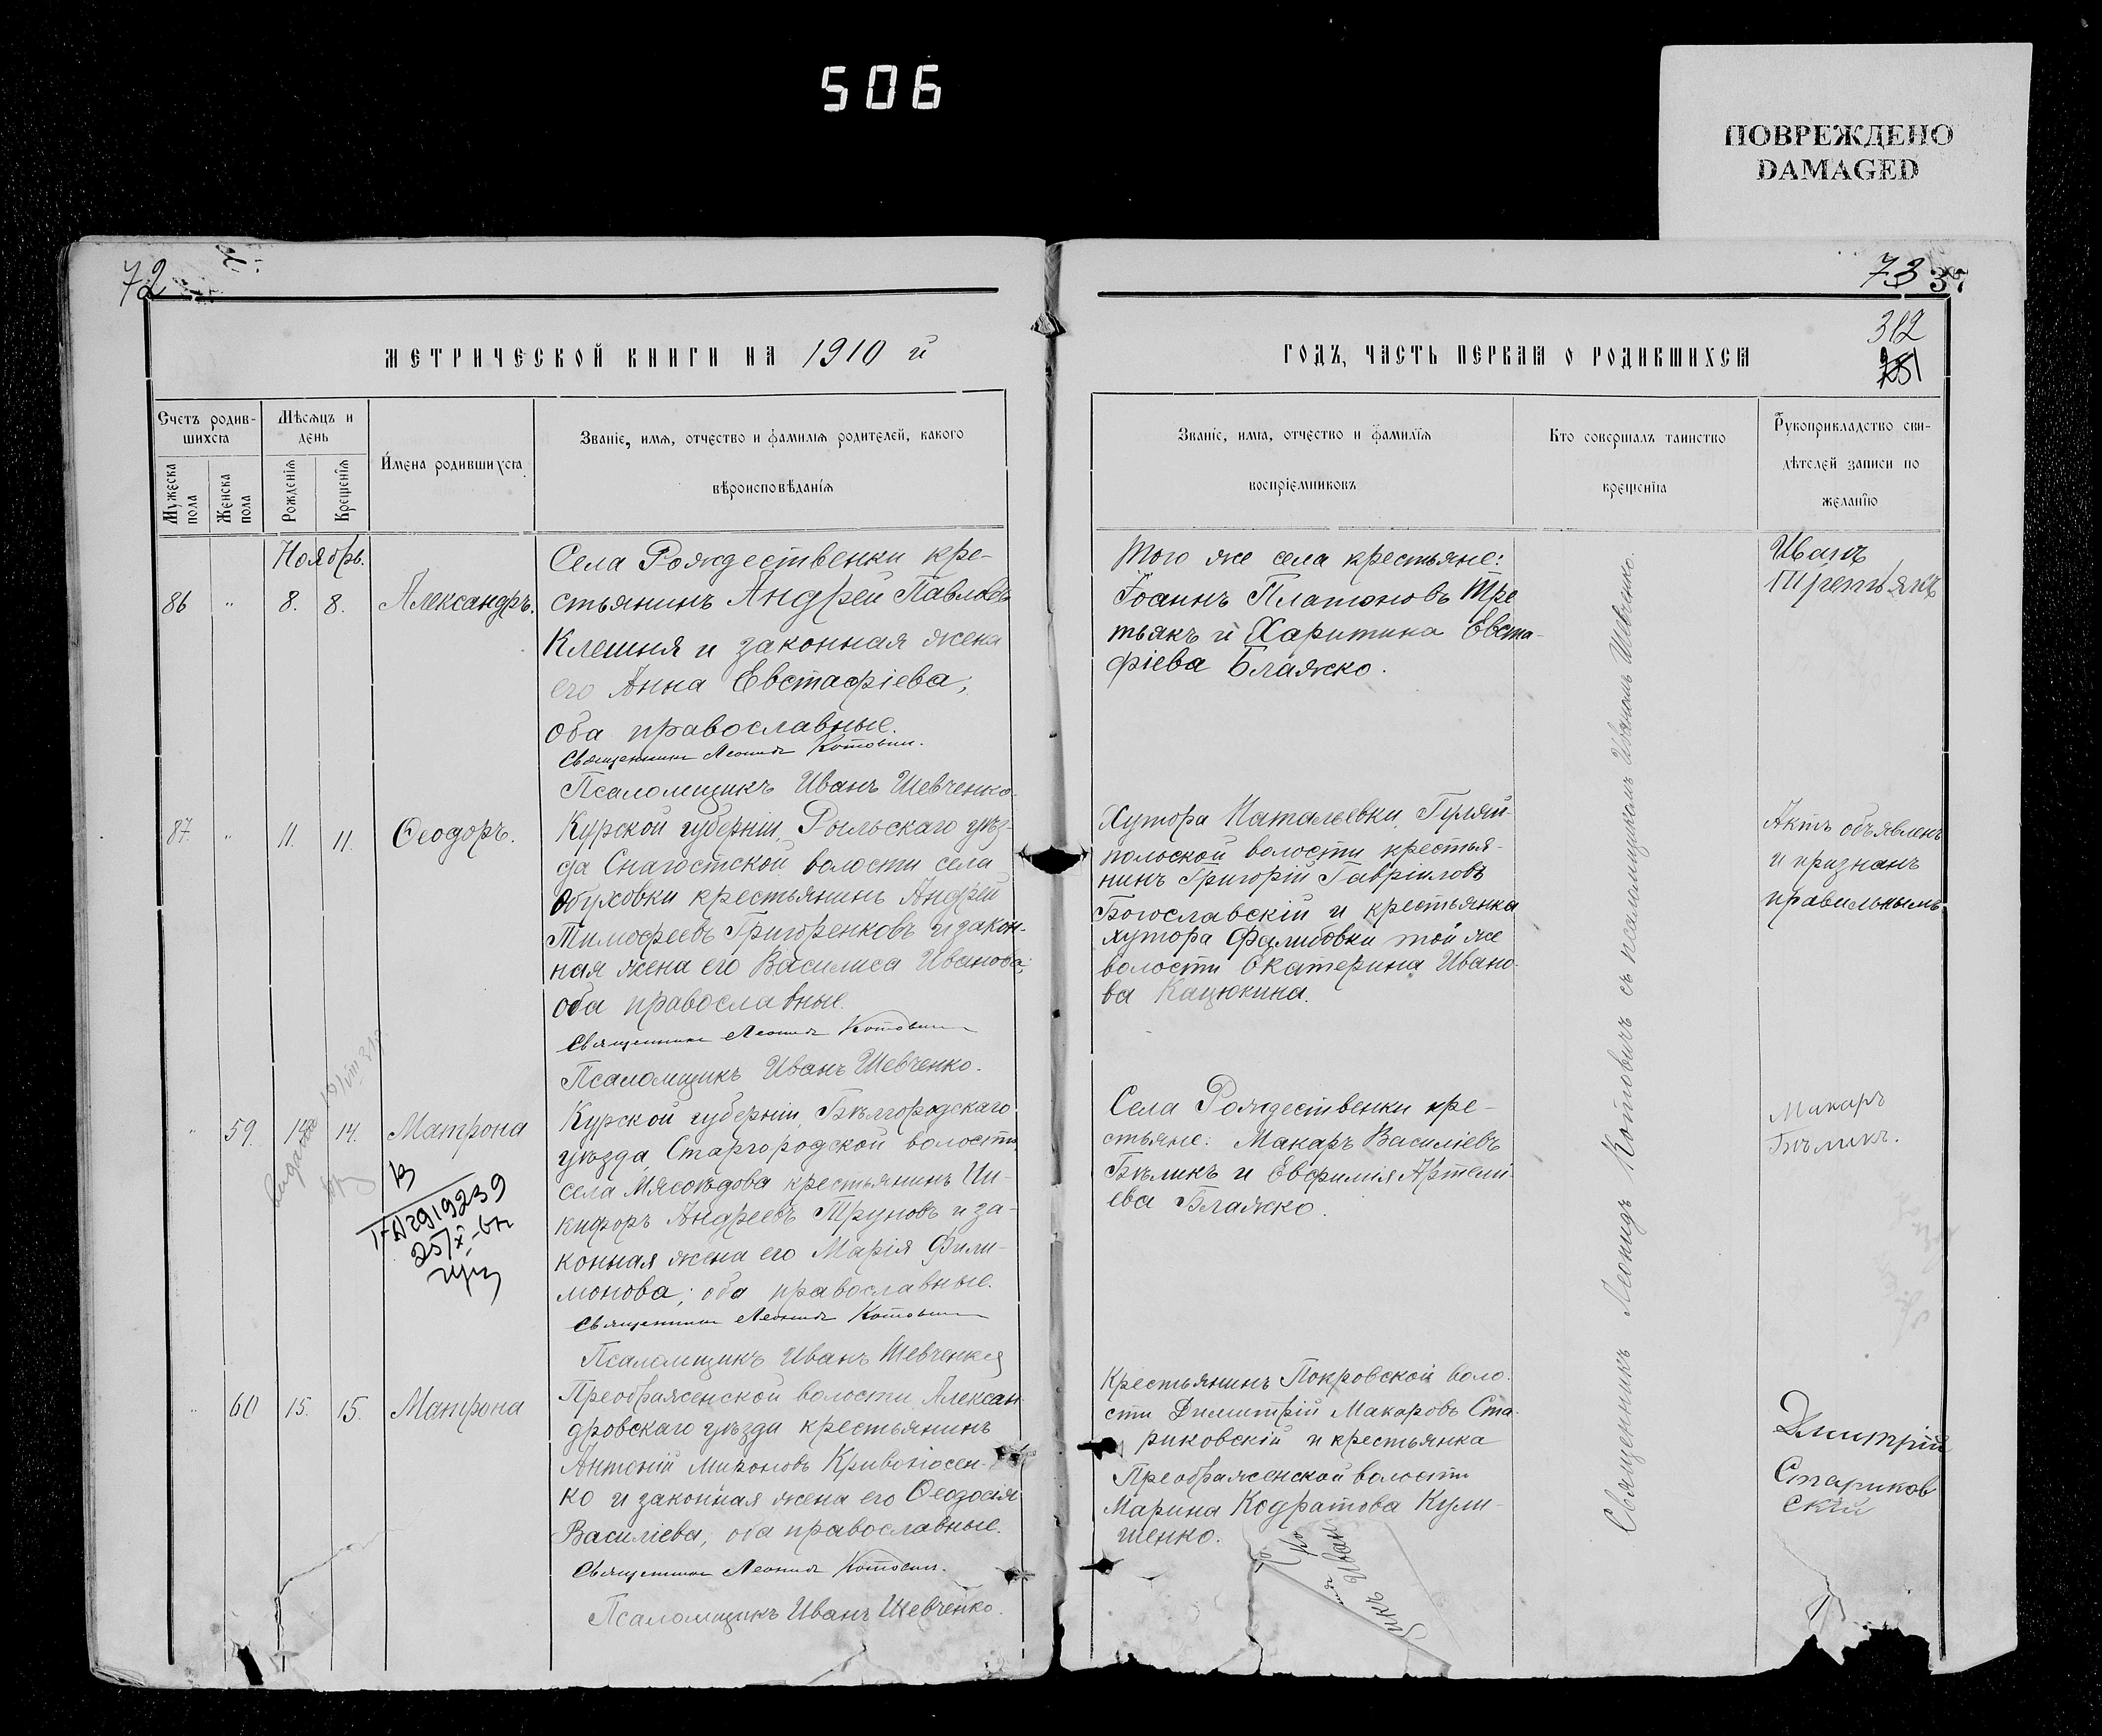 506
ПОВРЕЖДЕНО
DAMAGED
72
МЕТРИЧЕСКОЙ КНИГИ НА 1910 й
Счетъ родив-
шихся
Мѣсяцъ и
день
Имена родившихся
Званіе, имя, отчество и фамилія родителей, какого
вѣроисповѣданія
Мужеска
пола
Женска
пола
Рожденія
Крещенія
Ноябрь.
86 " 8. 8. Александръ.
Села Рождественки кре-
стьянинъ Андрей Павловъ
Клешня и законная жена
его Анна Евстафіева;
оба православные.
Священникъ Леонидъ Котович.
Псаломщикъ Иванъ Шевченко.
87. " 11. 11. Ѳеодоръ.
Курской губерніи, Рыльскаго уѣз-
да Снагостской волости села
Обуховки крестьянинъ Андрей
Тимофеевъ Григоренковъ и закон-
ная жена его Василиса Иванова;
оба православные.
Священникъ Леонидъ Котович
Псаломщикъ Иванъ Шевченко.
" 59. 14. 14. Матрона
Курской губерніи, Бѣлгородскаго
уѣзда, Старгородской волости
села Мясоѣдова крестьянинъ Ни-
кифоръ Андреевъ Труновъ и за-
конная жена его Марія Фили-
монова; оба православные.
Священникъ Леонидъ Котович
Псаломщикъ Иванъ Шевченко
" 60 15. 15. Матрона
Преображенской волости, Алексан-
дровскаго уѣзда крестьянинъ
Антоній Мироновъ Кривоносен-
ко и законная жена его Ѳеодосія
Василіева; оба православные.
Священникъ Леонидъ Котович.
Псаломщикъ Иванъ Шевченко.
73 37
312
ГОДЪ, ЧАСТЬ ПЕРВАЯ О РОДИВШИХСЯ
Званіе, имя, отчество и фамилія
воспріемниковъ
Кто совершалъ таинство
крещенія
Рукоприкладство сви-
дѣтелей записи по
желанію
Того же села крестьяне:
Іоаннъ Платоновъ Тре
тьякъ и Харитина Евста-
фіева Блажко.
Иванъ
Третьякъ
Хутора Натальевки, Гуляй-
польской волости крестья-
нинъ Григорій Гавріиловъ
Богославскій и крестьянка
хутора Фалибовки той же
волости Екатерина Ивано-
ва Кацюкина.
Актъ объявленъ
и признанъ
правильнымъ
Села Рождественки кре-
стьяне: Макаръ Василіевъ
Бѣликъ и Евфимія Артеми-
ева Блажко.
Макаръ
Бѣликъ.
Крестьянинъ Покровской воло-
сти Димитрій Макаровъ Ста-
риковскій и крестьянка
Преображенской волости
Марина Кодратова Кули-
шенко.
Дмитрій
Стариков
скій
Священникъ Леонидъ Котовичъ съ псаломщикомъ Иваномъ Шевченко.